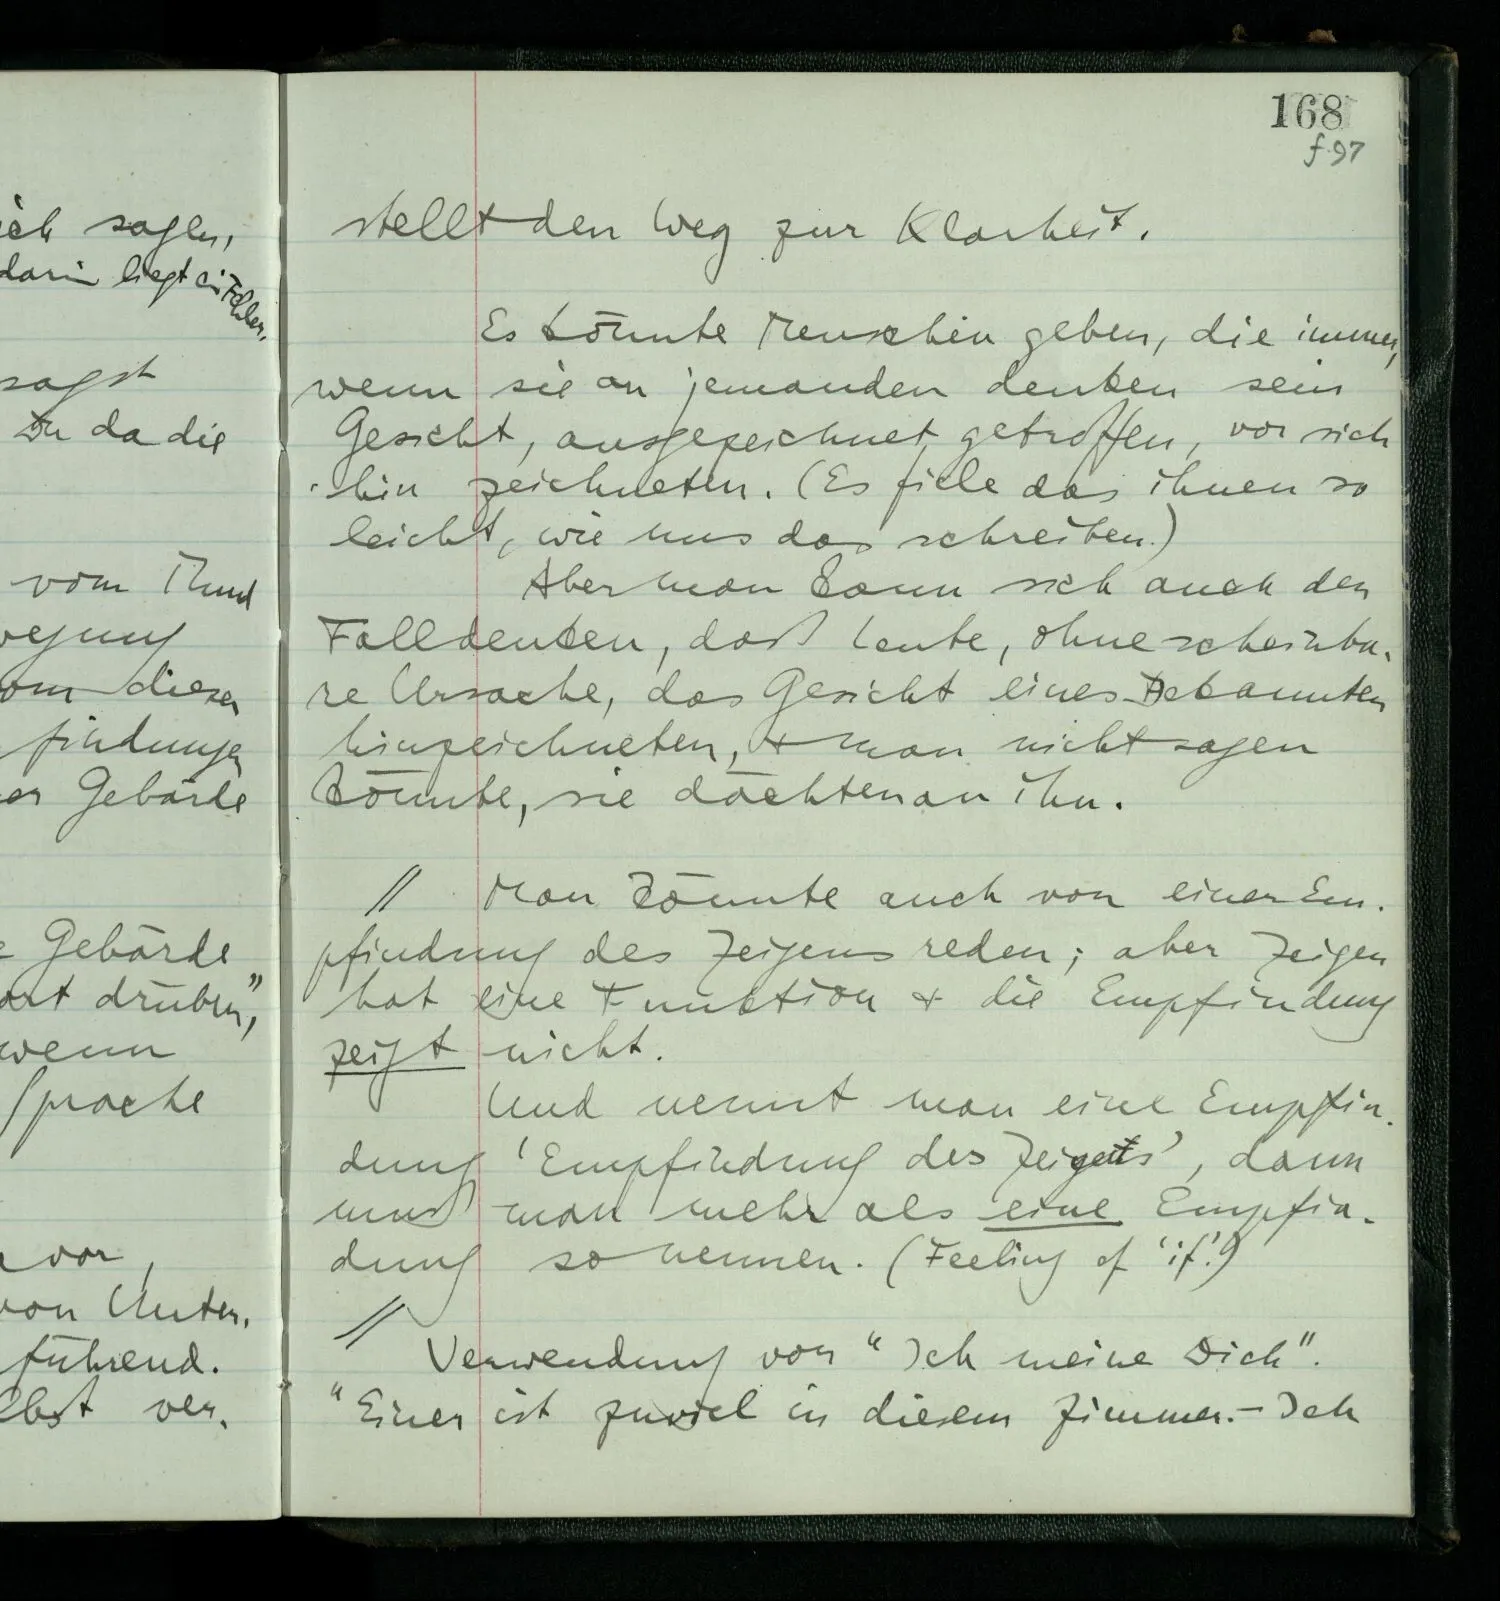 ich sagen,
darin liegt ein Fehler.
sagst
Du da die
vom Mund
wegung
von dieser
findungen
er Gebärde
Gebärde
dort drüben",
wenn
Sprache
vor,
von Unter-
führend.
selbst ver-
168
f 97
stellt den Weg zur Klarheit.
Es könnte Menschen geben, die immer,
wenn sie an jemanden denken sein
Gesicht, ausgezeichnet getroffen, vor sich
hin zeichneten. (Es fiele das ihnen so
leicht, wie uns das schreiben.)
Aber man kann sich auch den
Fall denken, daß Leute, ohne scheinba-
re Ursache, das Gesicht eines Bekannten
hinzeichneten, & man nicht sagen
könnte, sie dächten an ihn.
// Man könnte auch von einer Em-
pfindung des Zeigens reden; aber Zeigen
hat eine Funktion & die Empfindung
zeigt nicht.
Und nennt man eine Empfin-
dung 'Empfindung des Zeigens', dann
muß man mehr als eine Empfin-
dung so nennen. (Feeling of 'if'!)
//
Verwendung von "Ich meine Dich".
"Einer ist zuviel in diesem Zimmer. – Ich